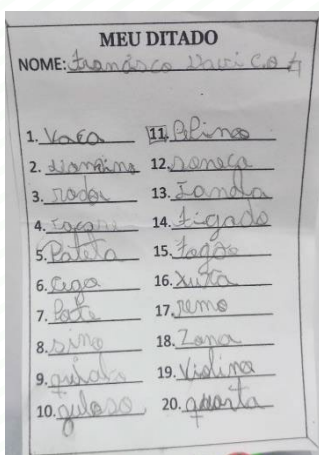 MEU DITADO
NOME: Francisco Davi C.
1. Vaca
2.
3. roda
4.
5. Paleta
6. Cega
7. Pote
8. sino
9.
10. guloso
11. Pepino
12. soneca
13. Janda
14. figado
15. fogão
16. xuxa
17. remo
18. Zona
19. Violino
20. quarta